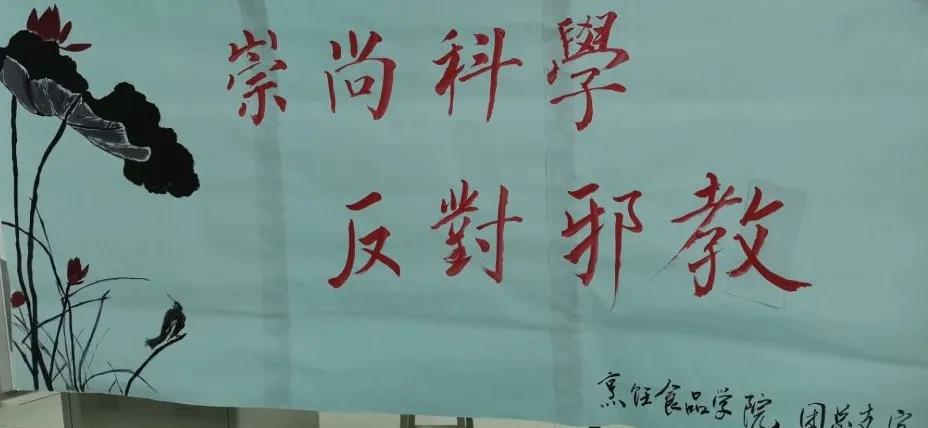 崇尚科學
反對邪教
烹饪食品学院 团总支宣